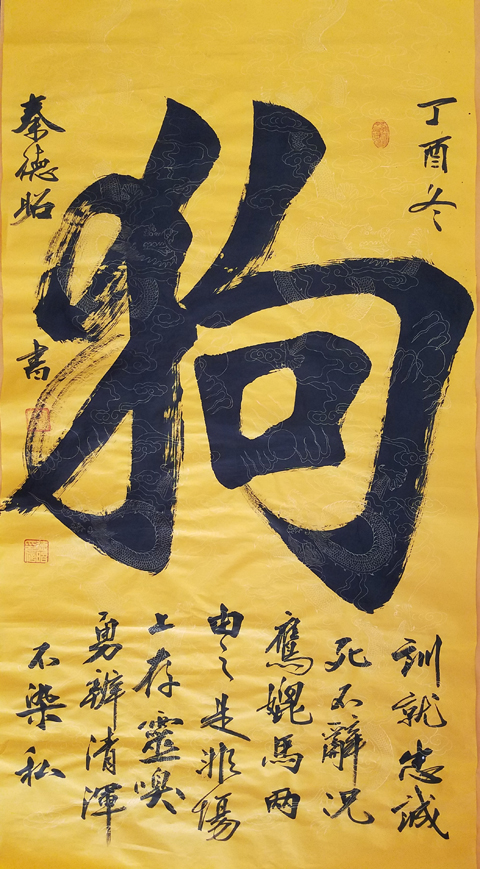 丁酉冬
狗
訓就忠誠
死不辭况
鷹媲馬两
由之是非場
上存靈嗅
勇辨清渾
不染私
秦德昭
書